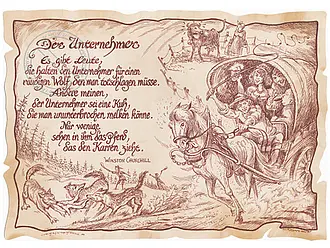 Der Unternehmer
Es gibt Leute,
die halten den Unternehmer für einen
räudigen Wolf, den man totschlagen müsse.
Andere meinen,
der Unternehmer sei eine Kuh,
die man ununterbrochen melken könne.
Nur wenige
sehen in ihm das Pferd,
das den Karren ziehe.
WINSTON CHURCHILL